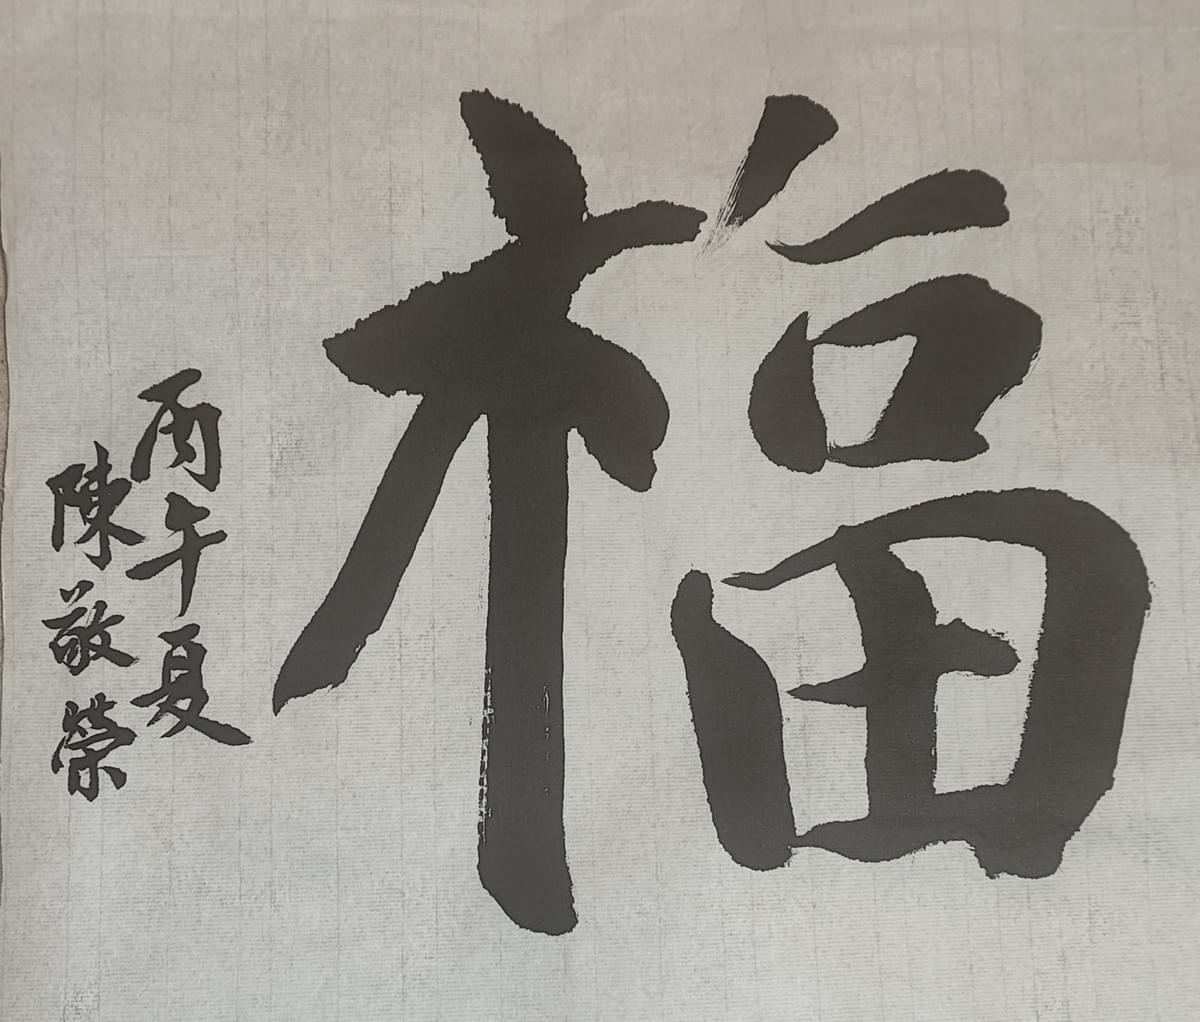 福
丙午夏
陳敬榮